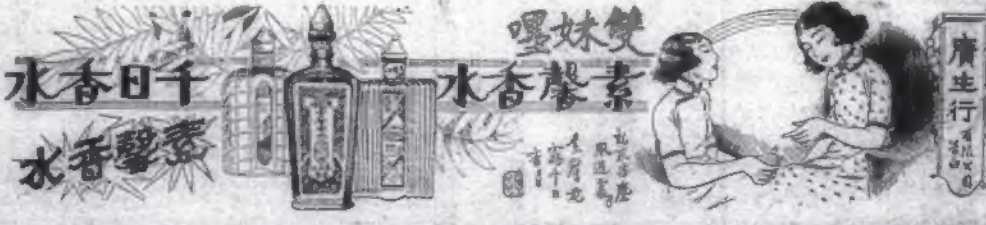 廣生行有限公司
雙妹嚜
素馨香水
千日香水
素馨香水